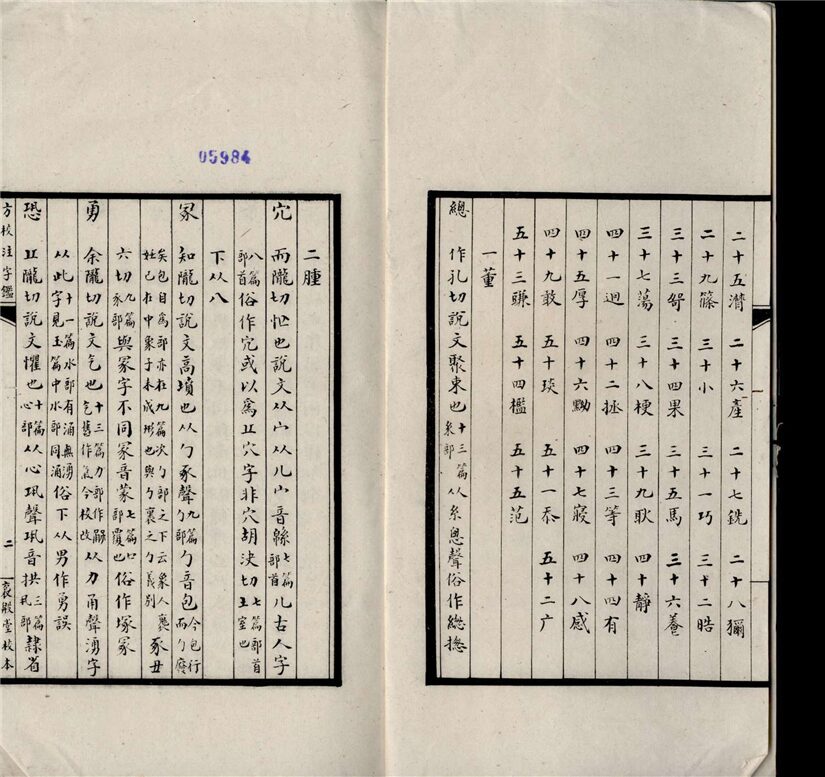 二十五潸 二十六產 二十七銑 二十八獮
二十九篠 三十小 三十一巧 三十二晧
三十三哿 三十四果 三十五馬 三十六養
三十七蕩 三十八梗 三十九耿 四十靜
四十一迥 四十二拯 四十三等 四十四有
四十五厚 四十六黝 四十七寑 四十八感
四十九敢 五十琰 五十一忝 五十二广
五十三豏 五十四檻 五十五范
一董
總 作孔切說文聚束也十三篇糸部从糸悤聲俗作總揔
二腫
宂 而隴切忙也說文从宀从儿宀音緜七篇部首儿古人字
八篇部首俗作冗或以爲丘穴字非穴胡決切七篇部首土室也
下从八
冢 知隴切說文高墳也从勹豖聲九篇勹部勹音包今包行而勹廢
矣包自爲部亦在九篇次勹部之下云象人裹妊巳在中象子未成形也與勹裹之勹義別豖丑
六切九篇豕部與冡字不同冡音蒙七篇冃部覆也俗作塚冢
勇 余隴切說文气也十三篇力部作勈气舊作氣今校改从力甬聲湧字
从此字見玉篇中水部同涌十一篇水部有涌無湧俗下从男作勇誤
恐 丘隴切說文懼也十篇心部从心巩聲巩音拱三篇丮部隸省
方校注字鑑 二 裛殿堂校本
05984